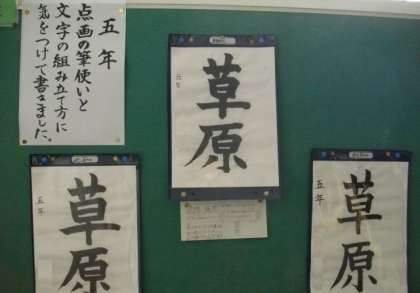 五年
点画の筆使いと
文字の組み立て方に
気をつけて書きました。
草原
五年
草原
五年
草原
五年